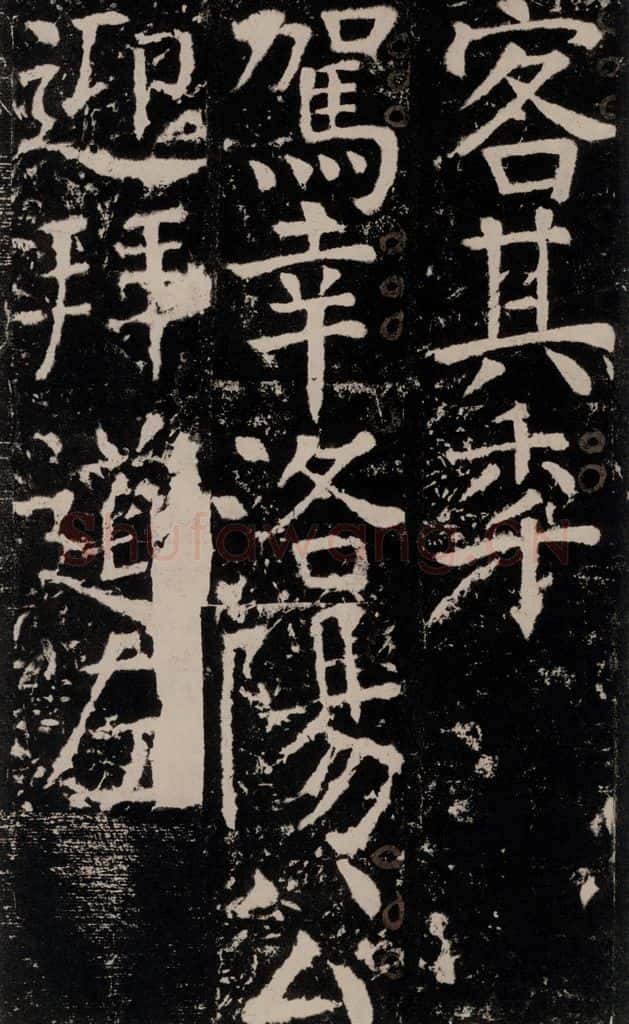 客其秊
駕幸洛陽公
迎拜道左
Shufawang.CN